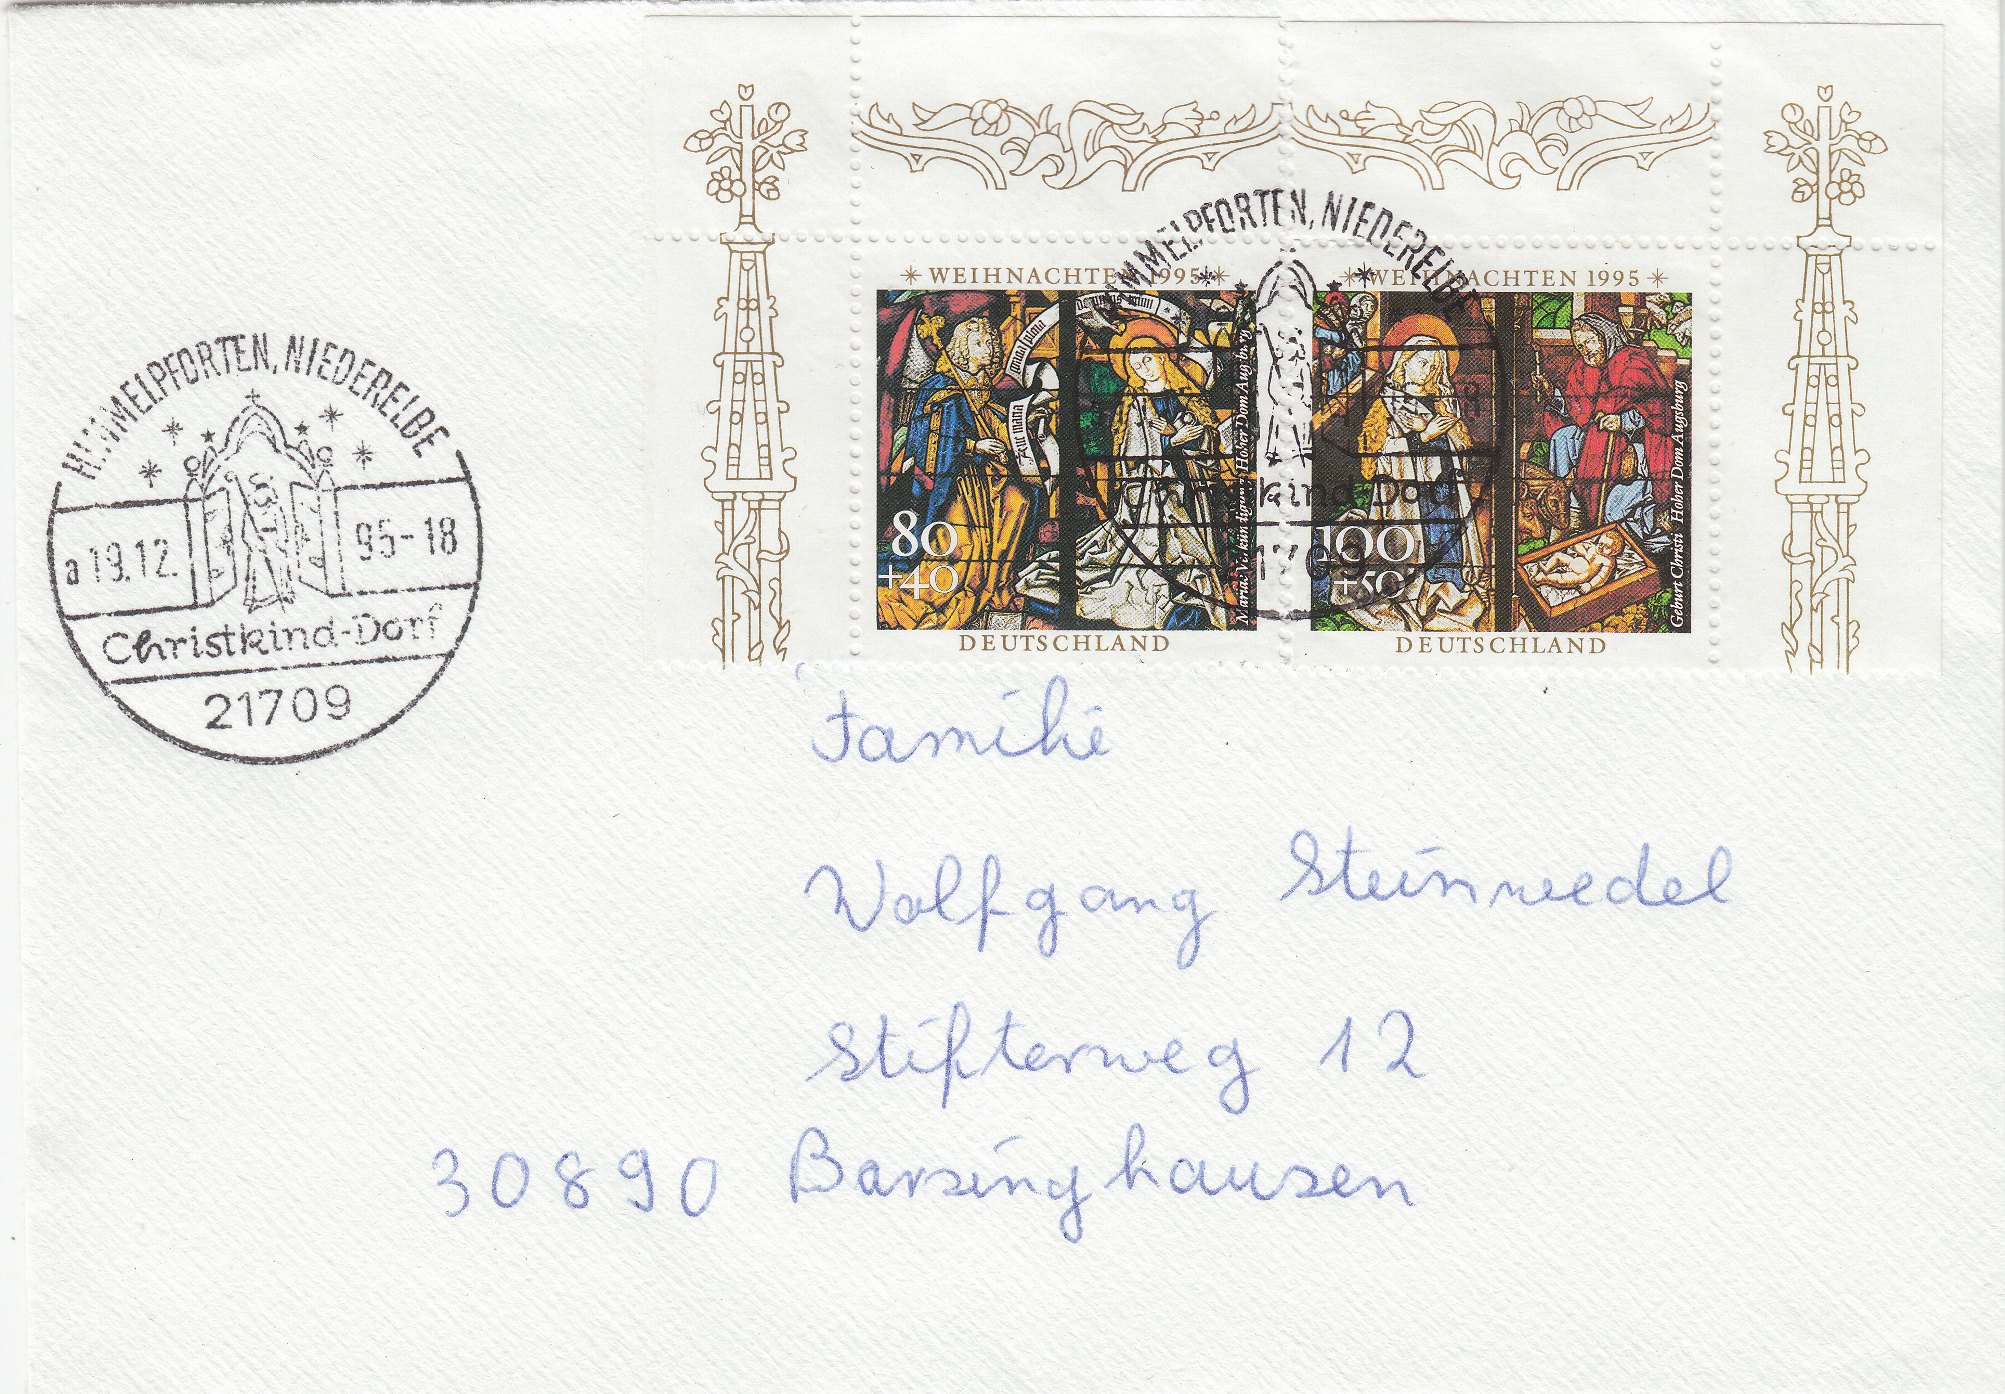 HIMMELPFORTEN, NIEDERELBE
a 19.12. 95-18
Christkind-Dorf
21709
WEIHNACHTEN 1995
80
+40
Mariä Verkündigung Hoher Dom Augsburg
DEUTSCHLAND
WEIHNACHTEN 1995
100
+50
Geburt Christi Hoher Dom Augsburg
DEUTSCHLAND
HIMMELPFORTEN, NIEDERELBE
Christkind-Dorf
21709
Familie
Wolfgang Steinwedel
Stifterweg 12
30890 Barsinghausen